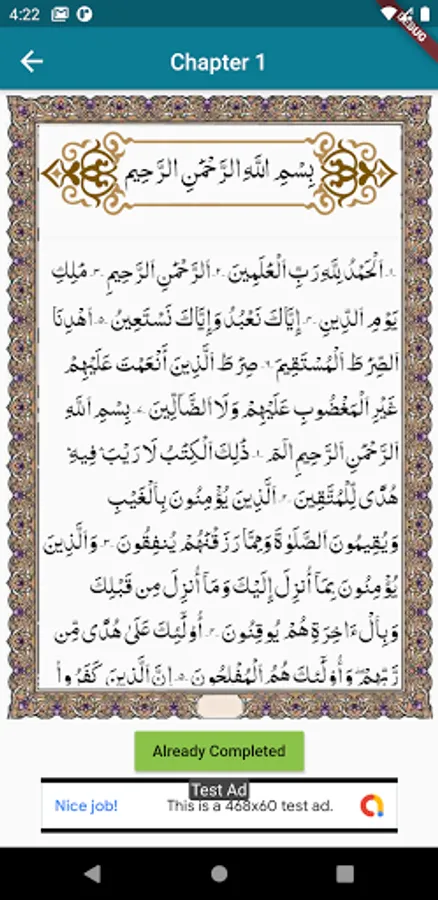 4:22
DEBUG
Chapter 1
بِسْمِ اللَّهِ الرَّحْمَٰنِ الرَّحِيمِ
١. اَلْحَمْدُ لِلَّهِ رَبِّ الْعَٰلَمِينَ ٢. اَلرَّحْمَٰنِ الرَّحِيمِ ٣. مَٰلِكِ
يَوْمِ الدِّينِ ٤. إِيَّاكَ نَعْبُدُ وَإِيَّاكَ نَسْتَعِينُ ٥. اَهْدِنَا
اَلصِّرَٰطَ الْمُسْتَقِيمَ ٦. صِرَٰطَ الَّذِينَ أَنْعَمْتَ عَلَيْهِمْ
غَيْرِ الْمَغْضُوبِ عَلَيْهِمْ وَلَا الضَّآلِّينَ ٧. بِسْمِ اللَّهِ
اَلرَّحْمَٰنِ اَلرَّحِيمِ الٓمٓ ١. ذَٰلِكَ الْكِتَٰبُ لَا رَيْبَ ۛ فِيهِ ۛ
هُدًى لِّلْمُتَّقِينَ ٢. اَلَّذِينَ يُؤْمِنُونَ بِالْغَيْبِ
وَيُقِيمُونَ اَلصَّلَوٰةَ وَمِمَّا رَزَقْنَٰهُمْ يُنفِقُونَ ٣. وَالَّذِينَ
يُؤْمِنُونَ بِمَآ أُنزِلَ إِلَيْكَ وَمَآ أُنزِلَ مِن قَبْلِكَ
وَبِالْءَاخِرَةِ هُمْ يُوقِنُونَ ٤. أُو۟لَٰٓئِكَ عَلَىٰ هُدًى مِّن
رَّبِّهِمْ ۖ وَأُو۟لَٰٓئِكَ هُمُ الْمُفْلِحُونَ ٥. إِنَّ الَّذِينَ كَفَرُوا۟
Already Completed
Test Ad
Nice job! This is a 468x60 test ad.